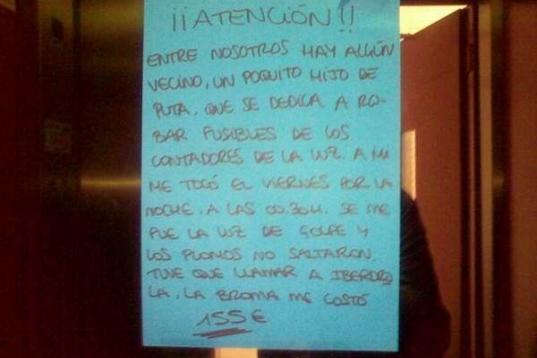 ¡¡ATENCIÓN!!
ENTRE NOSOTROS HAY ALGÚN
VECINO, UN POQUITO HIJO DE
PUTA, QUE SE DEDICA A RO-
BAR FUSIBLES DE LOS
CONTADORES DE LA LUZ. A MI
ME TOCÓ EL VIERNES POR LA
NOCHE, A LAS 00.30H. SE ME
FUE LA LUZ DE GOLPE Y
LOS PLOMOS NO SALTARON.
TUVE QUE LLAMAR A IBERDRO
LA, LA BROMA ME COSTÓ
155€